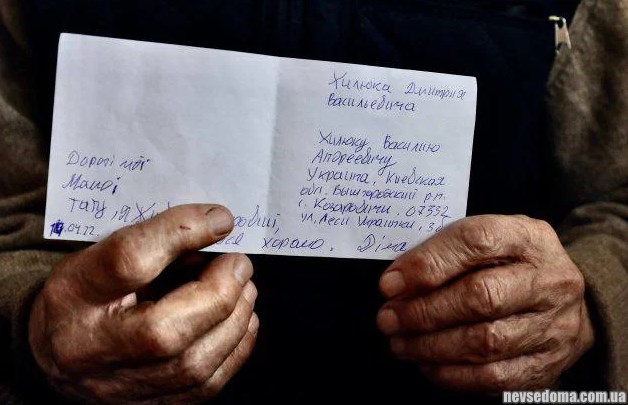 Хилюка Дмитрия
Васильевича
Хилюку Василию
Андреевичу
Украина, Киевская
обл. Вышгородский р-н.
с. Козаровичи, 07332
ул. Леси Украинки,
Дорогі мої
Мамо і
тату, я
04.22.
хорошо. Діма
nevsedoma.com.ua